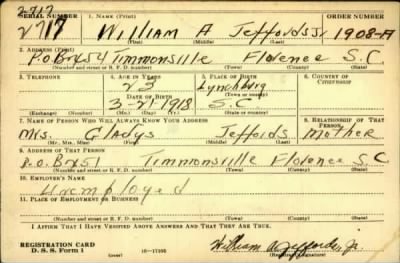 2717
SERIAL NUMBER 1. NAME (Print) ORDER NUMBER
2717 William A Jeffords Jr 1908-A
(First) (Middle) (Last)
2. ADDRESS (Print)
P.O. Bx 54 Timmonsville Florence S.C.
(Number and street or R. F. D. number) (Town) (County) (State)
3. TELEPHONE 4. AGE IN YEARS 5. PLACE OF BIRTH 6. COUNTRY OF CITIZENSHIP
23 Lynchburg
DATE OF BIRTH (Town or county)
3-21-1918 S.C.
(Exchange) (Number) (Mo.) (Day) (Yr.) (State or country)
7. NAME OF PERSON WHO WILL ALWAYS KNOW YOUR ADDRESS 8. RELATIONSHIP OF THAT PERSON
Mrs. Gladys Jeffords Mother
(Mr., Mrs., Miss) (First) (Middle) (Last)
9. ADDRESS OF THAT PERSON
P.O. Bx 51 Timmonsville Florence S.C
(Number and street or R. F. D. number) (Town) (County) (State)
10. EMPLOYER'S NAME
Unemployed
11. PLACE OF EMPLOYMENT OR BUSINESS
(Number and street or R. F. D. number) (Town) (County) (State)
I AFFIRM THAT I HAVE VERIFIED ABOVE ANSWERS AND THAT THEY ARE TRUE.
REGISTRATION CARD
D. S. S. Form 1 (over) William A Jeffords, Jr.
(Registrant's signature)